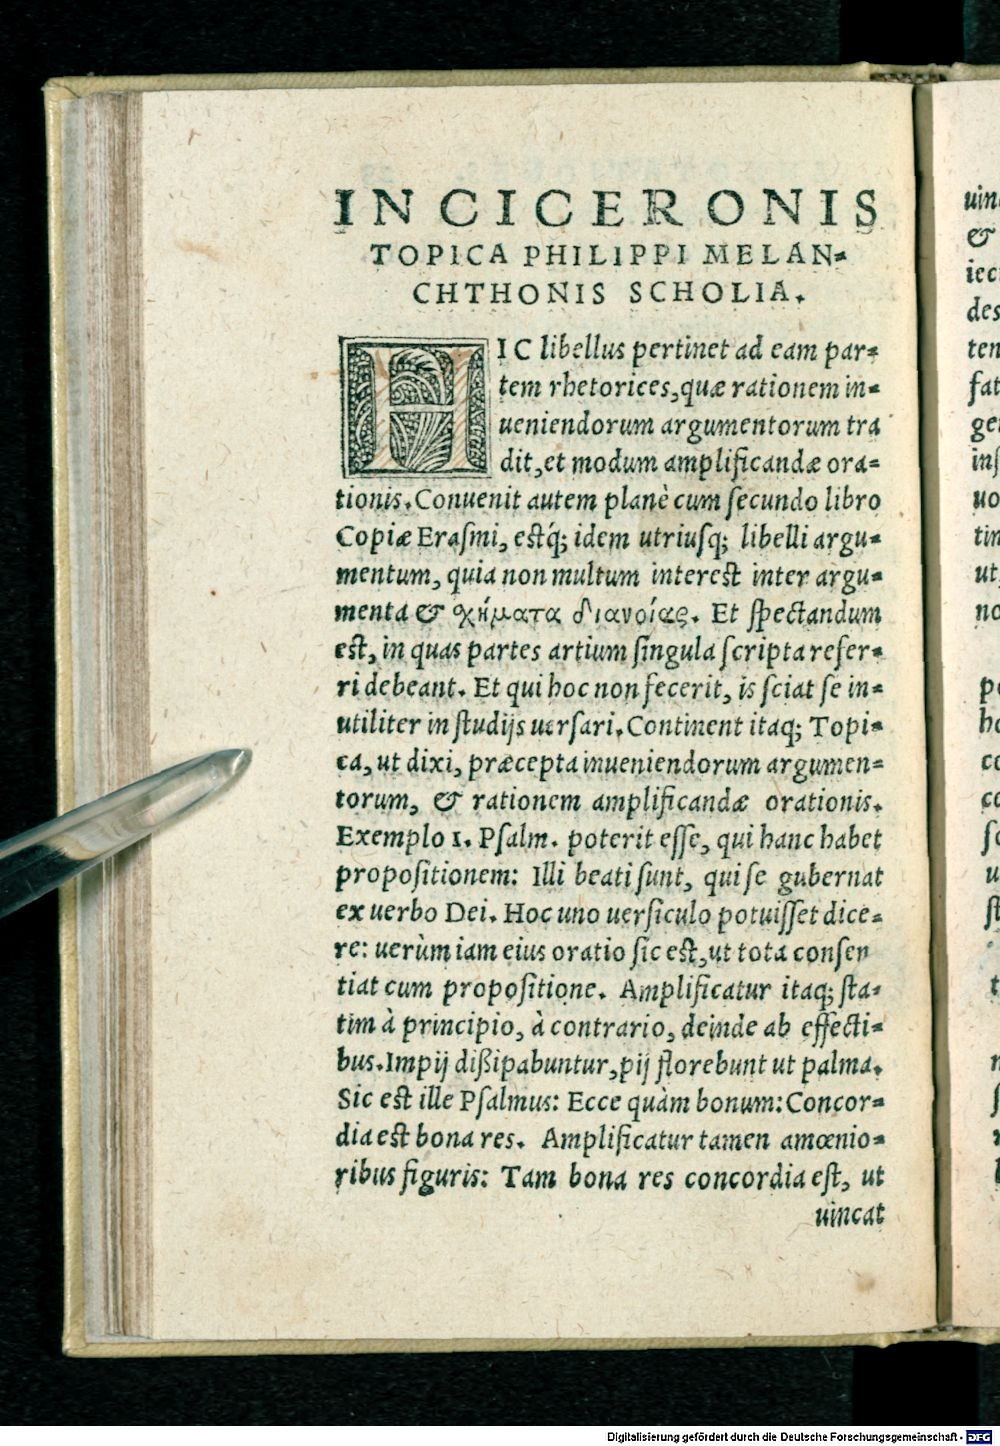 IN CICERONIS
TOPICA PHILIPPI MELAN-
CHTHONIS SCHOLIA.
HIC libellus pertinet ad eam par-
tem rhetorices, quæ rationem in-
ueniendorum argumentorum tra
dit, et modum amplificandæ ora-
tionis. Conuenit autem planè cum ſecundo libro
Copiæ Eraſmi, eſtq́; idem utriuſq; libelli argu-
mentum, quia non multum intereſt inter argu-
menta & χήματα διανοίας. Et ſpectandum
eſt, in quas partes artium ſingula ſcripta refer-
ri debeant. Et qui hoc non fecerit, is ſciat ſe in-
utiliter in ſtudijs uerſari. Continent itaq; Topi-
ca, ut dixi, præcepta inueniendorum argumen-
torum, & rationem amplificandæ orationis.
Exemplo 1. Pſalm. poterit eſſe, qui hanc habet
propoſitionem: Illi beati ſunt, qui ſe gubernat
ex uerbo Dei. Hoc uno uerſiculo potuiſſet dice-
re: uerùm iam eius oratio ſic eſt, ut tota conſen
tiat cum propoſitione. Amplificatur itaq; ſta-
tim à principio, à contrario, deinde ab effecti-
bus. Impij dißipabuntur, pij florebunt ut palma.
Sic eſt ille Pſalmus: Ecce quàm bonum: Concor-
dia eſt bona res. Amplificatur tamen amœnio-
ribus figuris: Tam bona res concordia eſt, ut
uincat
&
des
ut
no
Digitalisierung gefördert durch die Deutsche Forschungsgemeinschaft - DFG